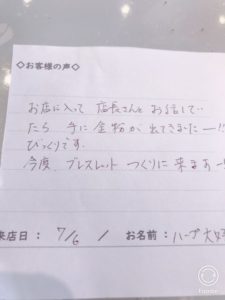 ◇お客様の声◇
お店に入って 店長さんと お話して‥
たら 手に 金粉が 出てきました ー!!
びっくりです。
今度 ブレスレット つくりに 来るぁー!
来店日: 7/6 / お名前: ハープ大好